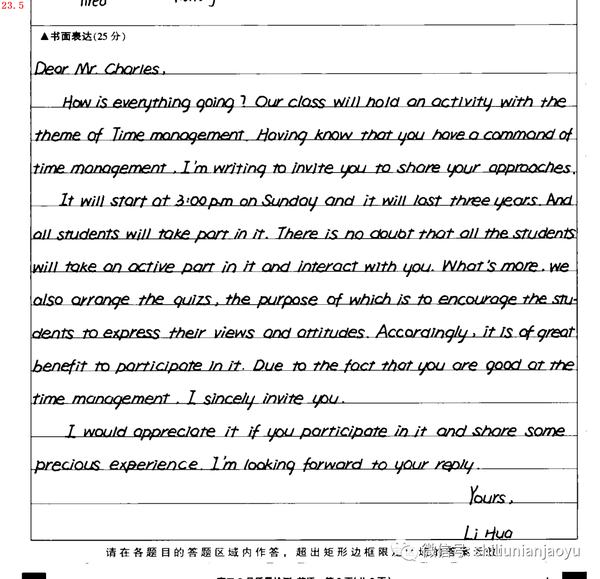 23.5
▲书面表达(25分)
Dear Mr. Charles,
How is everything going? Our class will hold an activity with the
theme of Time management. Having know that you have a command of
time management, I'm writing to invite you to share your approaches.
It will start at 3:00p.m on Sunday and it will last three years. And
all students will take part in it. There is no doubt that all the students
will take an active part in it and interact with you. What's more, we
also arrange the quizs, the purpose of which is to encourage the stu-
dents to express their views and attitudes. Accordingly, it is of great
benefit to participate in it. Due to the fact that you are good at the
time management, I sincely invite you.
I would appreciate it if you participate in it and share some
precious experience. I'm looking forward to your reply.
Yours,
Li Hua
请在各题目的答题区域内作答，超出矩形边框限定
微信号: shiliunianjiaoyu